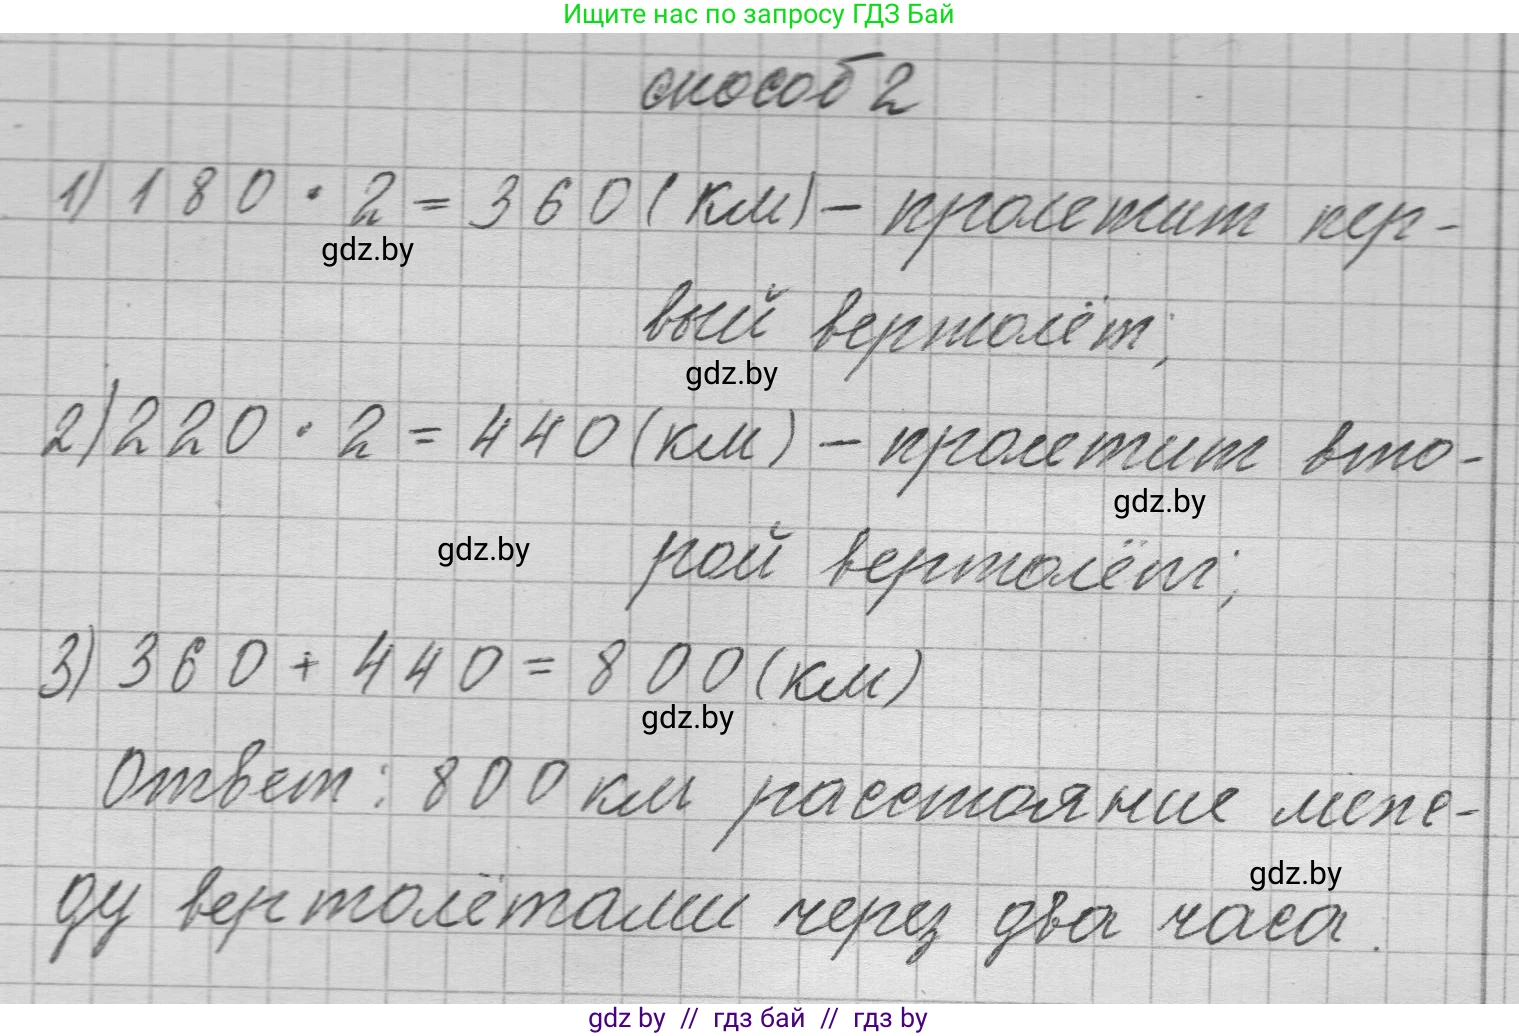 Ищите нас по запросу ГДЗ Бай
способ 2
1) 180 · 2 = 360 (км) – пролетит пер-
gdz.by
вый вертолёт;
gdz.by
2) 220 · 2 = 440 (км) – пролетит вто-
gdz.by
gdz.by
рой вертолёт;
3) 360 + 440 = 800 (км)
gdz.by
Ответ: 800 км расстояние меж-
gdz.by
ду вертолётами через два часа.
gdz by // гдз бай // гдз by